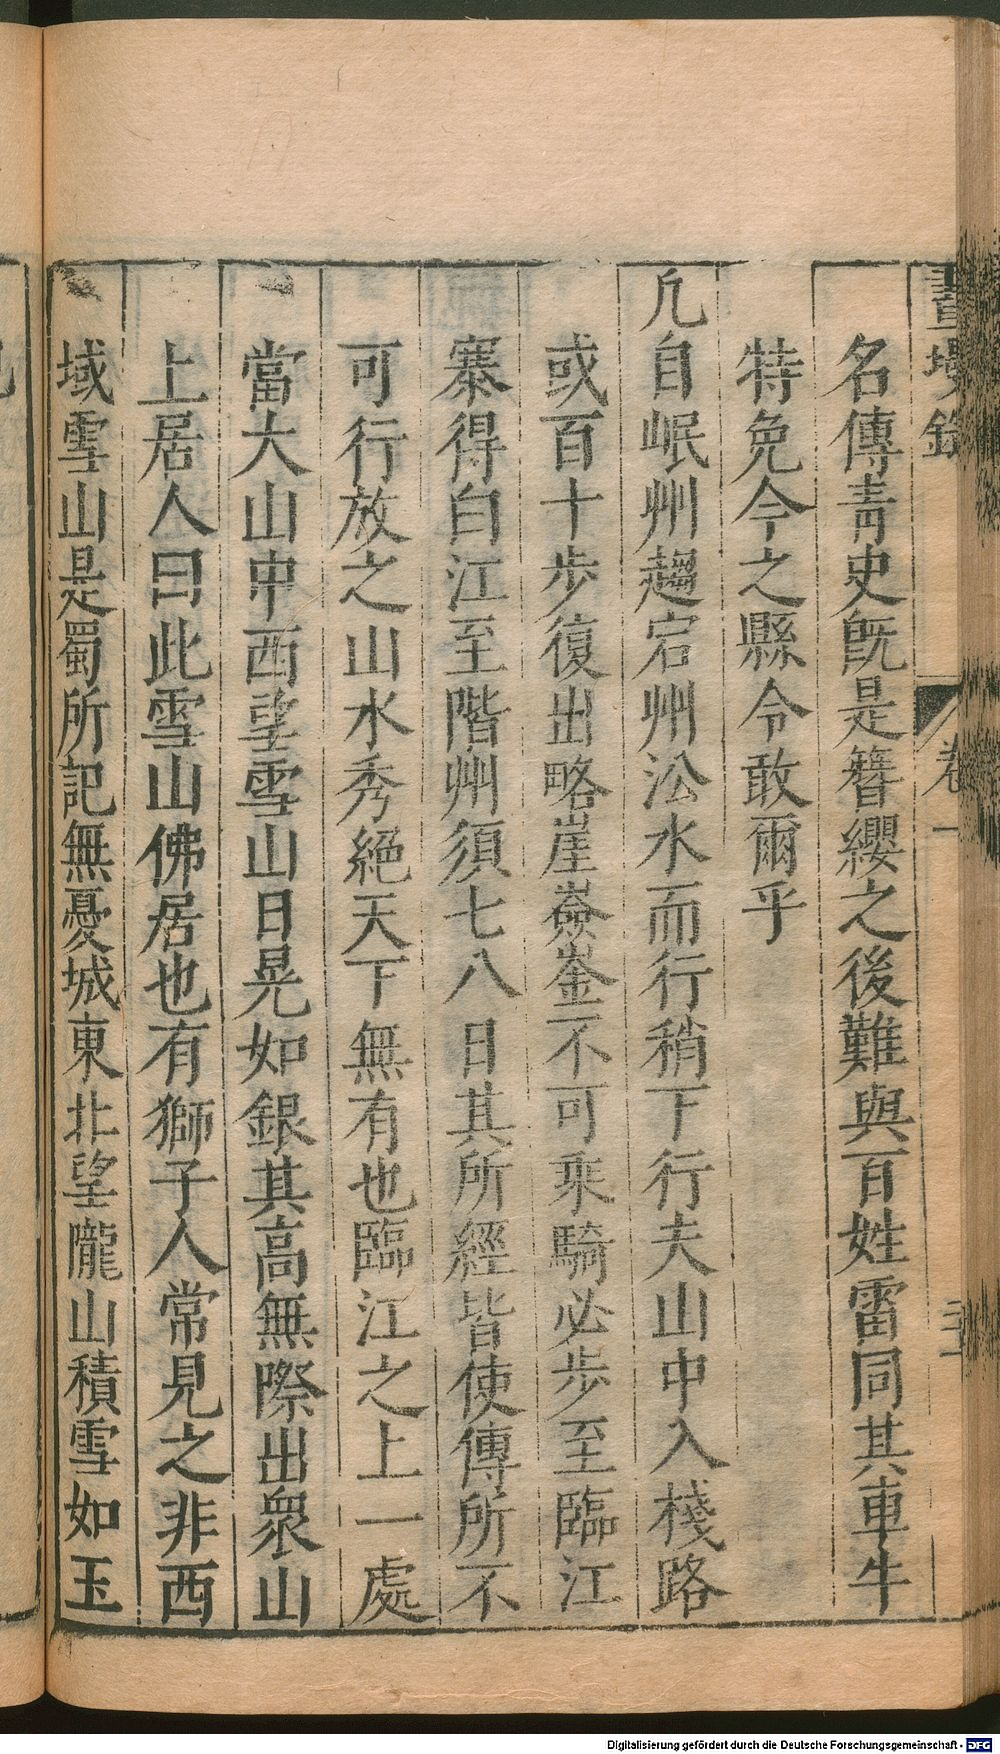 墁錄
卷一
名傳青史旣是簪纓之後難與百姓雷同其車牛
特免今之縣令敢爾乎
凢自岷州趨宕州㳂水而行稍下行夫山中入棧路
或百十步復出略崖嶔崟不可乘騎必步至臨江
寨得白江至階州須七八日其所經皆使傳所不
可行放之山水秀絕天下無有也臨江之上一處
當大山中西望雪山日晃如銀其高無際出衆山
上居人曰此雪山佛居也有獅子人常見之非西
域雪山是蜀所記無憂城東北望隴山積雪如玉
Digitalisierung gefördert durch die Deutsche Forschungsgemeinschaft - DFG